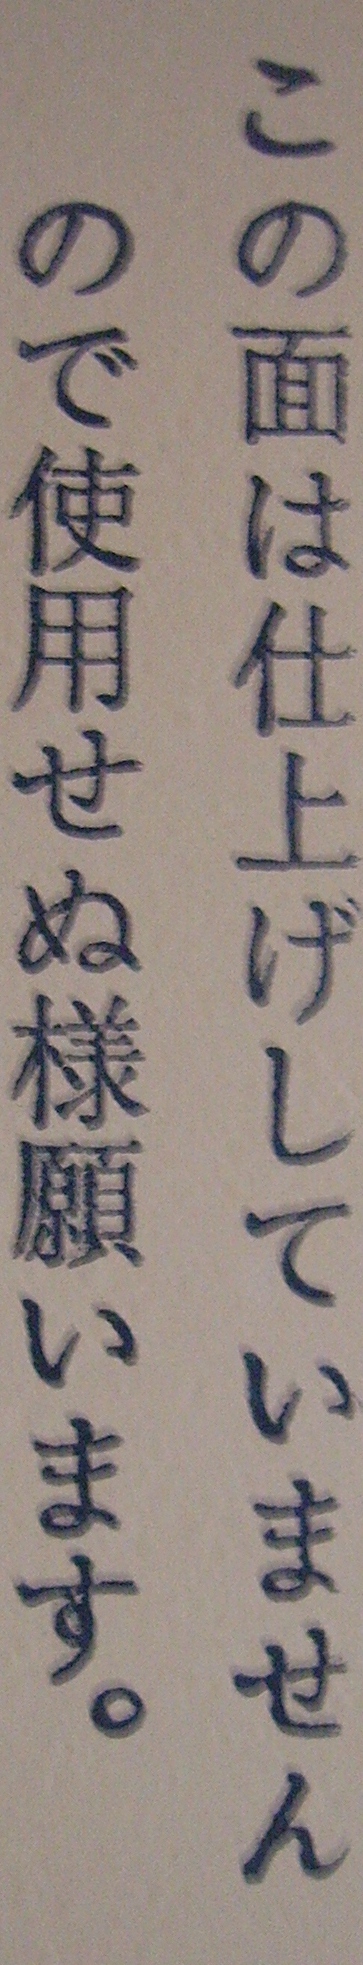 この面は仕上げしていません
ので使用せぬ様願います。